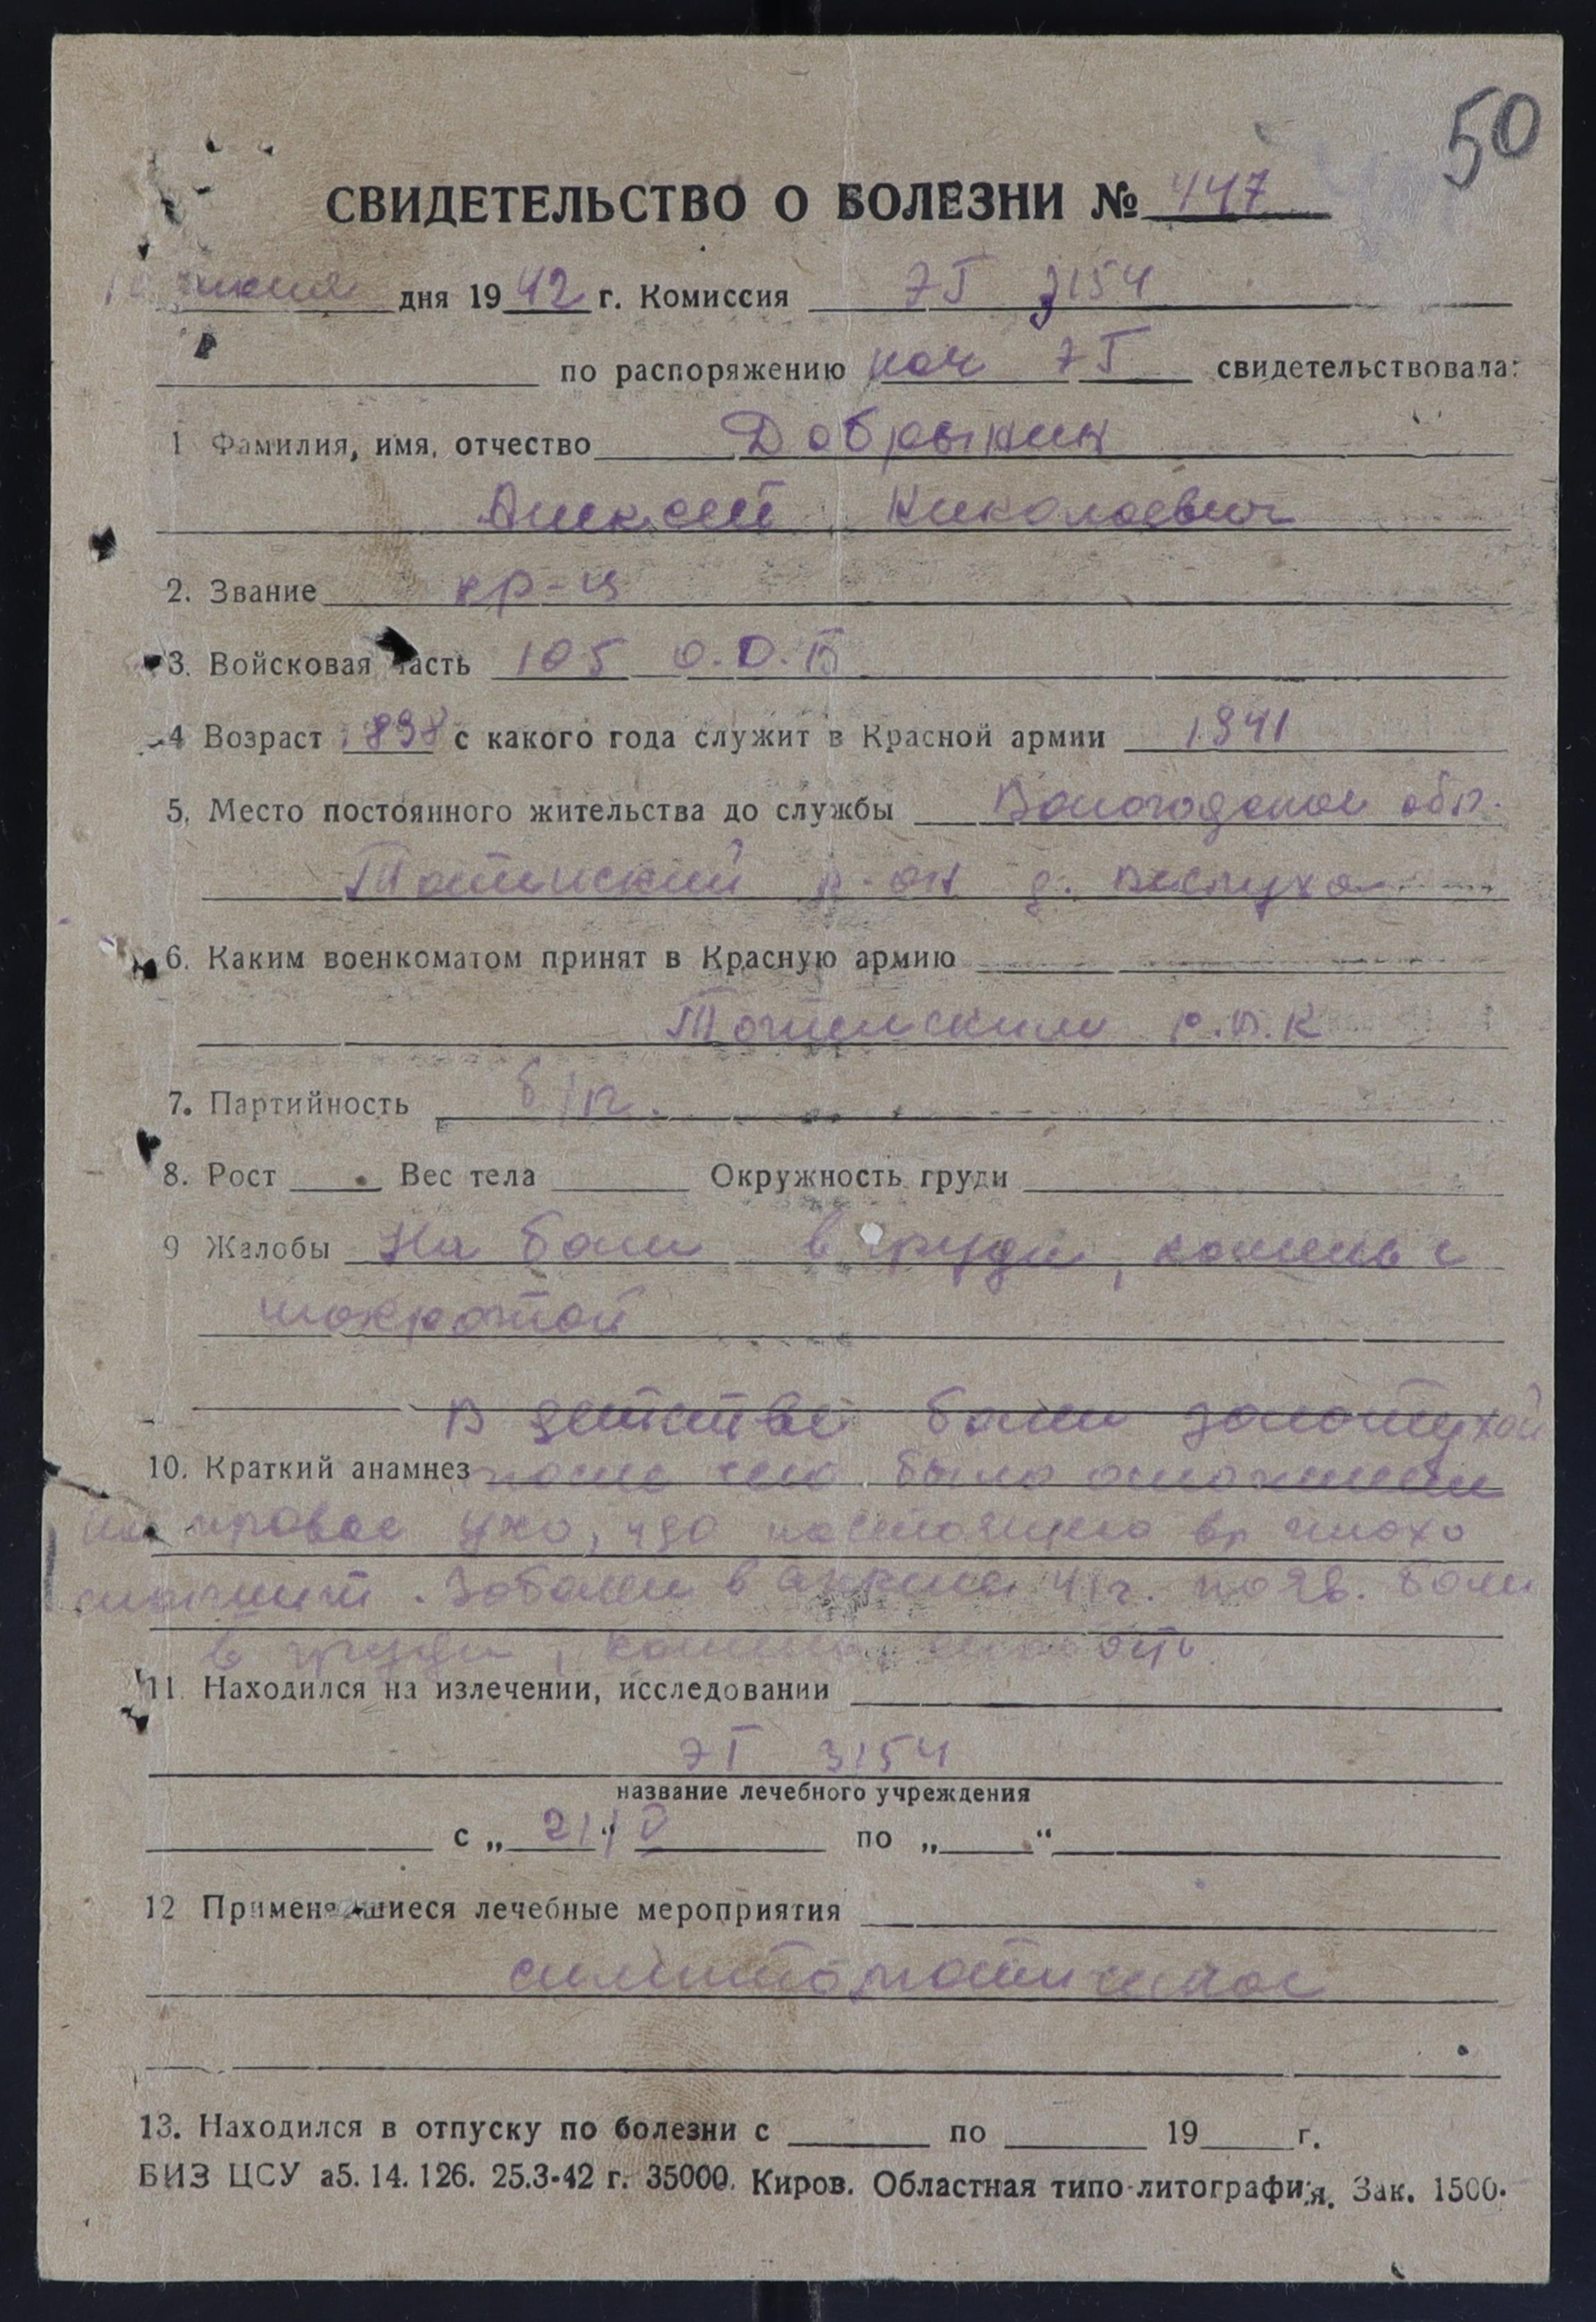 50
СВИДЕТЕЛЬСТВО О БОЛЕЗНИ № 447
июня дня 1942 г. Комиссия ЭГ 3154
по распоряжению нач ЭГ свидетельствовала:
1 Фамилия, имя, отчество Добрынин
Алексей Николаевич
2. Звание кр-ц
3. Войсковая часть 105 О.О.Б
4 Возраст 1898 с какого года служит в Красной армии 1941
5. Место постоянного жительства до службы Вологодская обл.
Тотемский р-он д.
6. Каким военкоматом принят в Красную армию
Тотемским р.в.к
7. Партийность б/п.
8. Рост Вес тела Окружность груди
9 Жалобы На боли в груди, кашель с
мокротой
В детстве болел золотухой
10. Краткий анамнез после чего было
на правое ухо, до настоящего вр плохо
слышит. Заболел в апреле 41 г. появ. боли
в груди, кашель
11. Находился на излечении, исследовании
ЭГ 3154
название лечебного учреждения
с „21“ V по „ “
12 Применявшиеся лечебные мероприятия
симптоматическое
13. Находился в отпуску по болезни с по 19 г.
БИЗ ЦСУ а5. 14. 126. 25.3-42 г. 35000. Киров. Областная типо-литография. Зак. 1500.